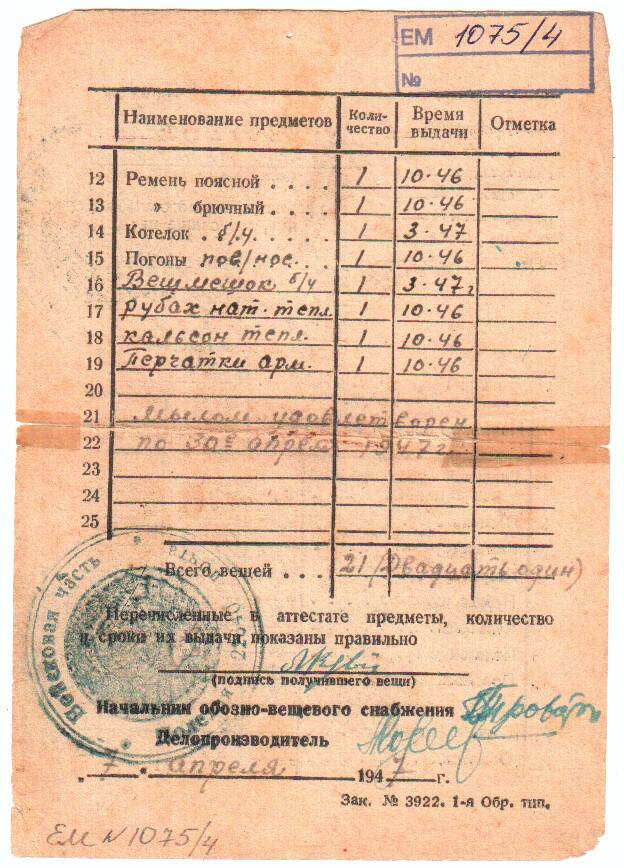 ЕМ 1075/4
№
Наименование предметов Коли-чество Время выдачи Отметка
12 Ремень поясной . . . . 1 10·46
13 » брючный . . . . 1 10·46
14 Котелок . б/у. . . . . 1 3·47
15 Погоны пов/нос. . . . 1 10·46
16 Вещмешок б/у 1 3·47г
17 рубах нат. тепл. 1 10·46
18 кальсон тепл. 1 10·46
19 Перчатки арм. 1 10·46
20
21 Мылом удовлетворен
22 по 30е апреля 1947 г.
23
24
25
Всего вещей . . . 21 (Двадцать один)
Перечисленные в аттестате предметы, количество
и сроки их выдачи показаны правильно
(подпись получившего вещи)
Начальник обозно-вещевого снабжения
Делопроизводитель
„7“ апреля 1947 г.
Зак. № 3922. 1-я Обр. тип.
Войсковая часть
ЕМ N 1075/4